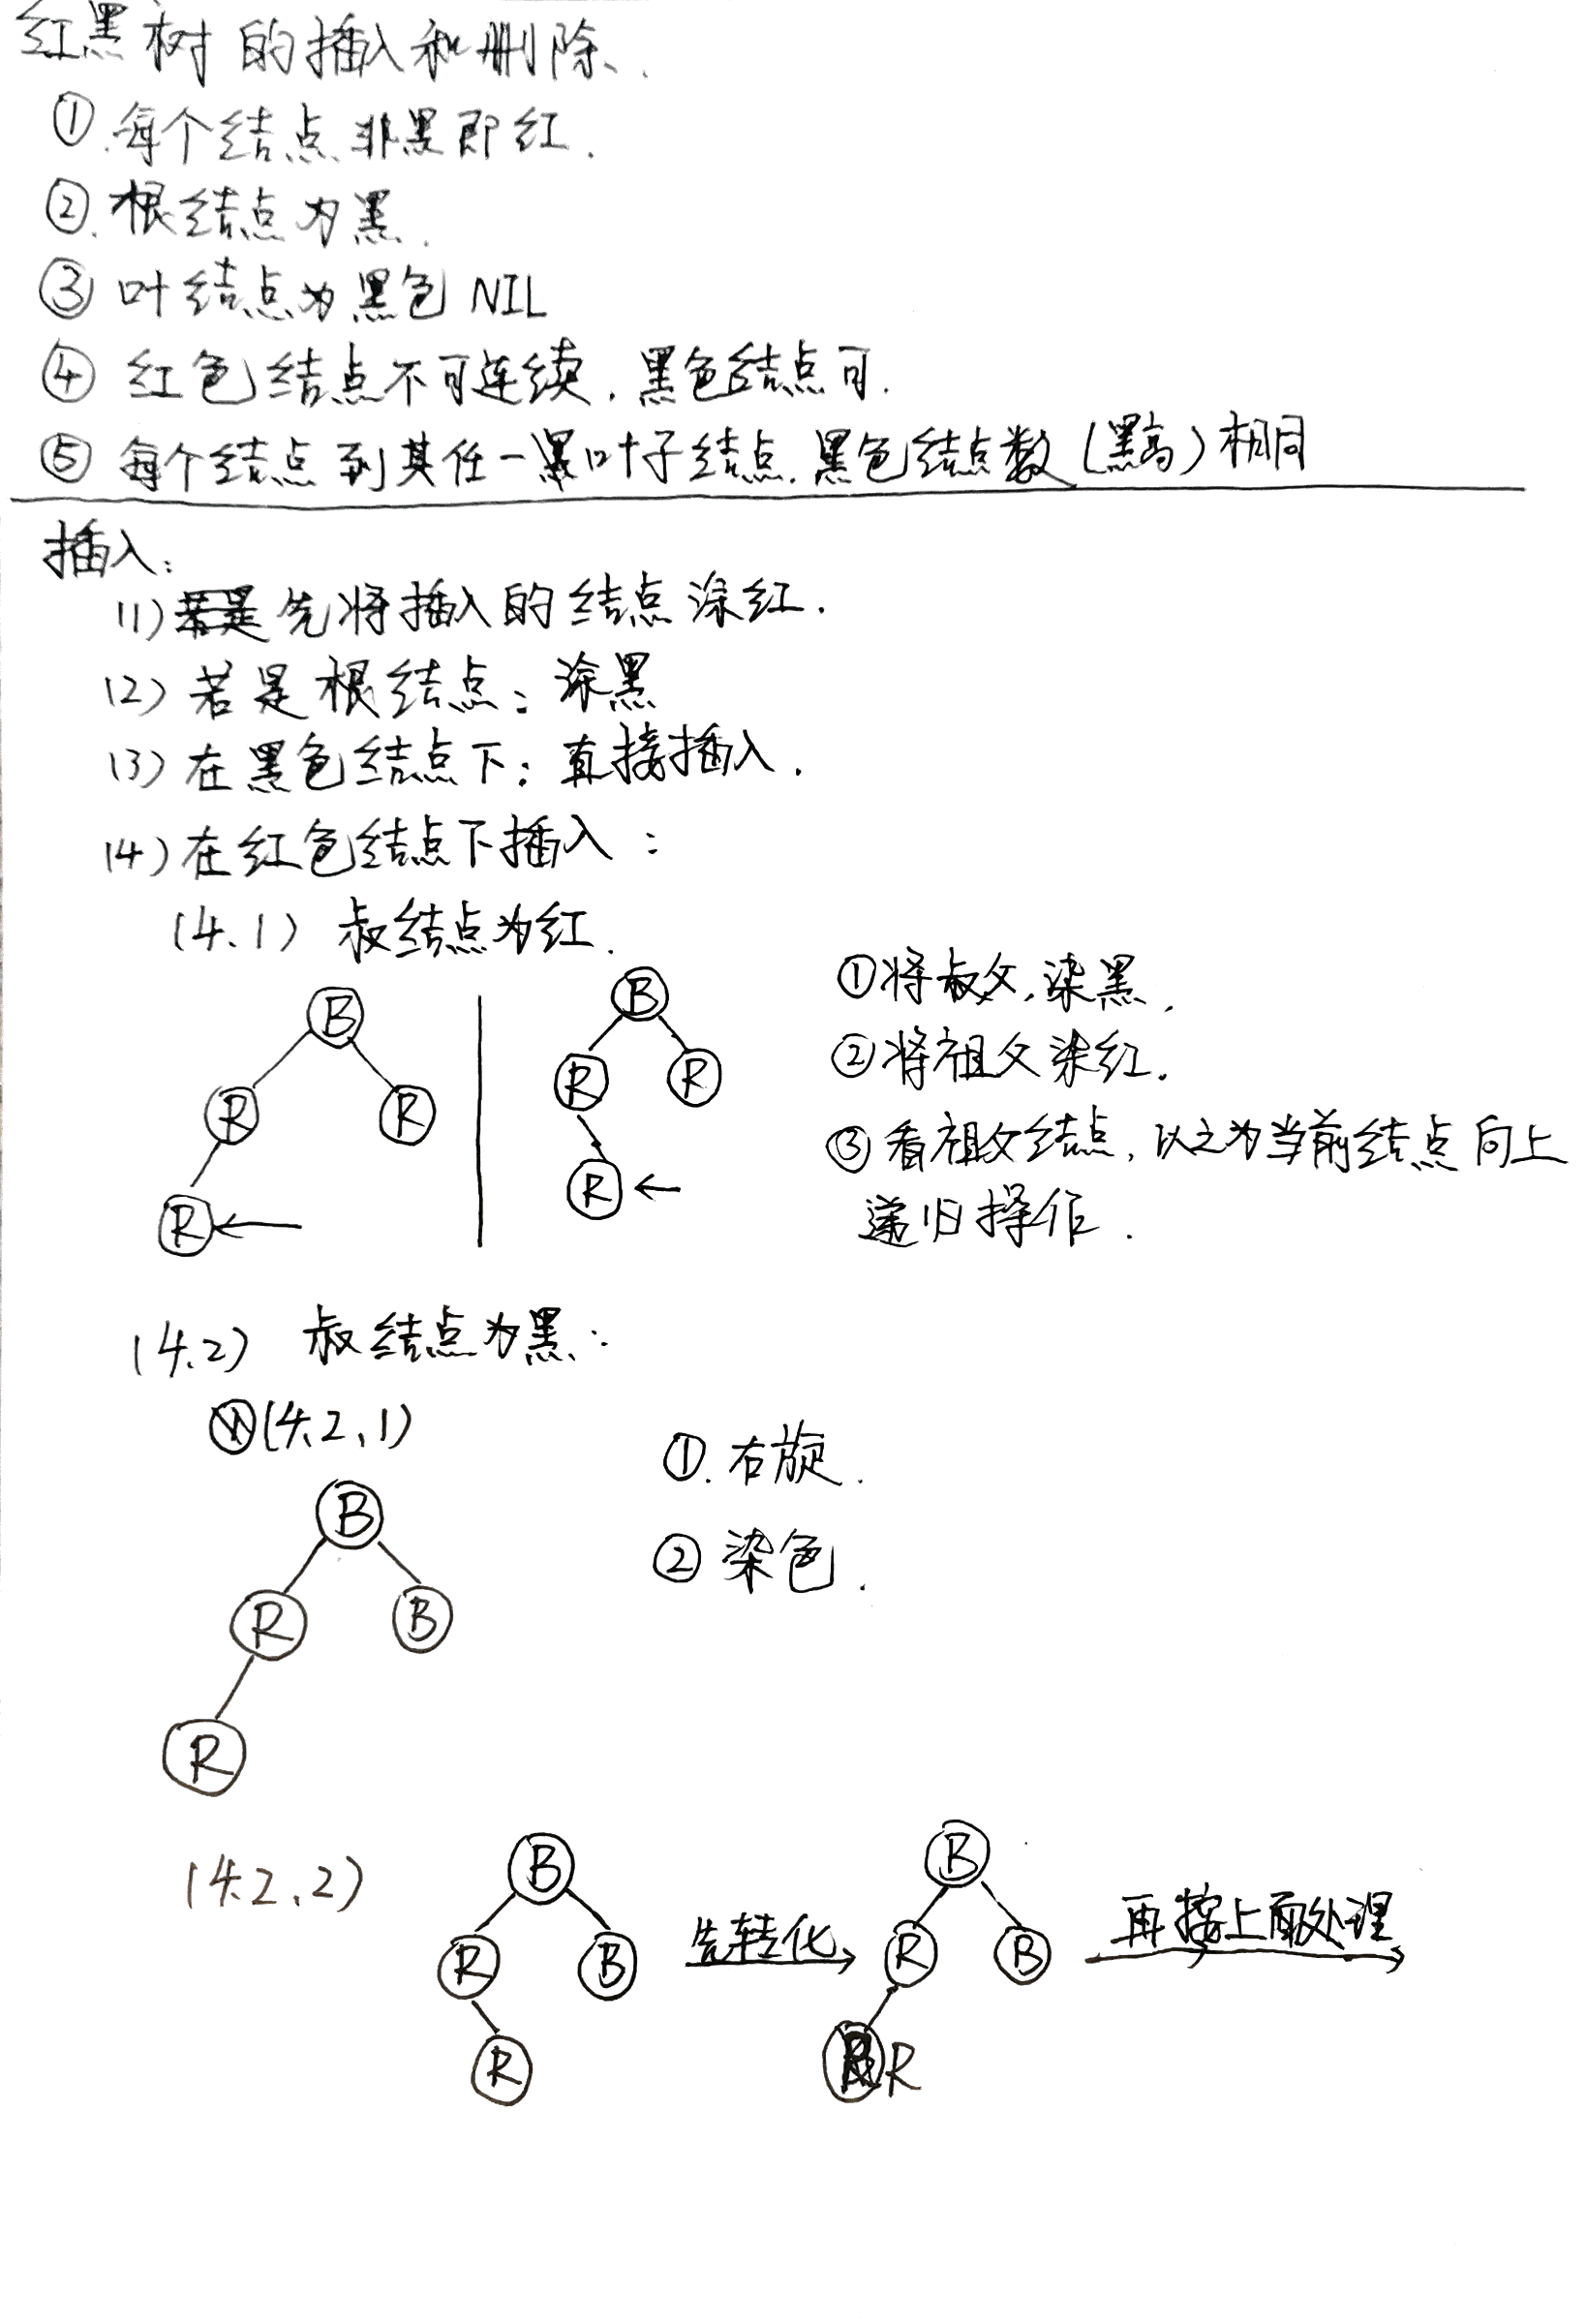 红黑树的插入和删除.
①.每个结点非黑即红.
②.根结点为黑.
③ 叶结点为黑色 NIL
④ 红色结点不可连续.黑色结点可.
⑤ 每个结点到其任一黑叶子结点.黑色结点数(黑高)相同
插入:
(1) 先将插入的结点涂红.
(2) 若是根结点:涂黑
(3) 在黑色结点下:直接插入.
(4) 在红色结点下插入:
(4.1) 叔结点为红.
B
R R
R ←
B
R R
R ←
①将叔父,染黑.
②将祖父染红.
③看祖父结点,以之为当前结点向上
递归操作.
(4.2) 叔结点为黑:
(4.2.1)
①.右旋.
② 染色.
B
R B
R
(4.2.2)
B
R B
R
先转化
B
R B
R
再按上面处理